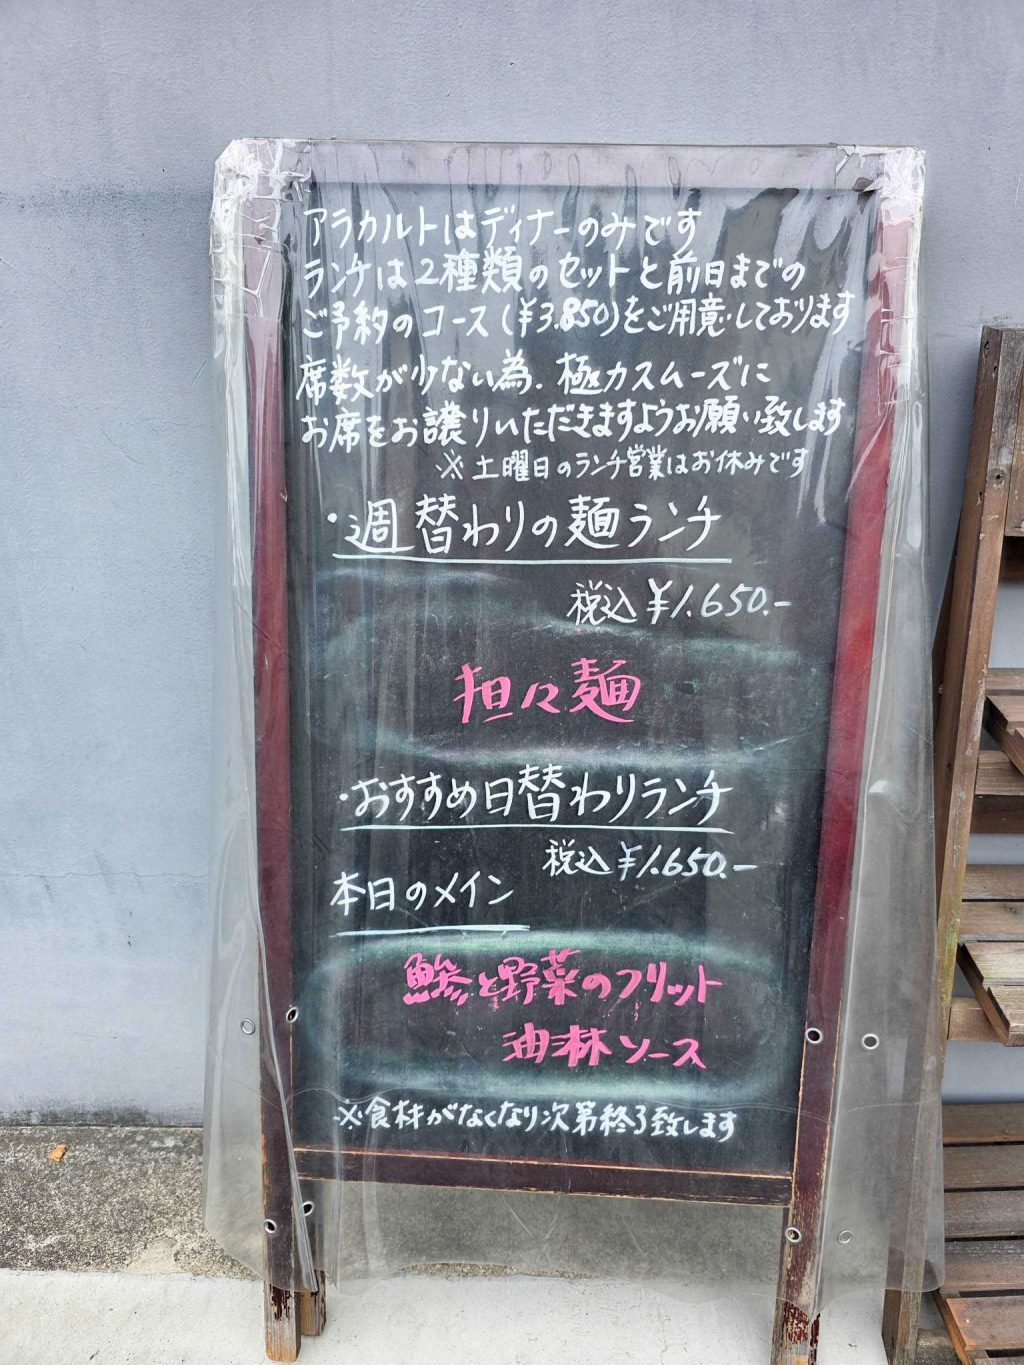 アラカルトはディナーのみです
ランチは2種類のセットと前日までの
ご予約のコース(¥3.850)をご用意しております
席数が少ない為、極力スムーズに
お席をお譲りいただきますようお願い致します
※土曜日のランチ営業はお休みです
・週替わりの麺ランチ
税込¥1.650.-
担々麺
・おすすめ日替わりランチ
税込¥1.650.-
本日のメイン
鯵と野菜のフリット
油淋ソース
※食材がなくなり次第終了致します